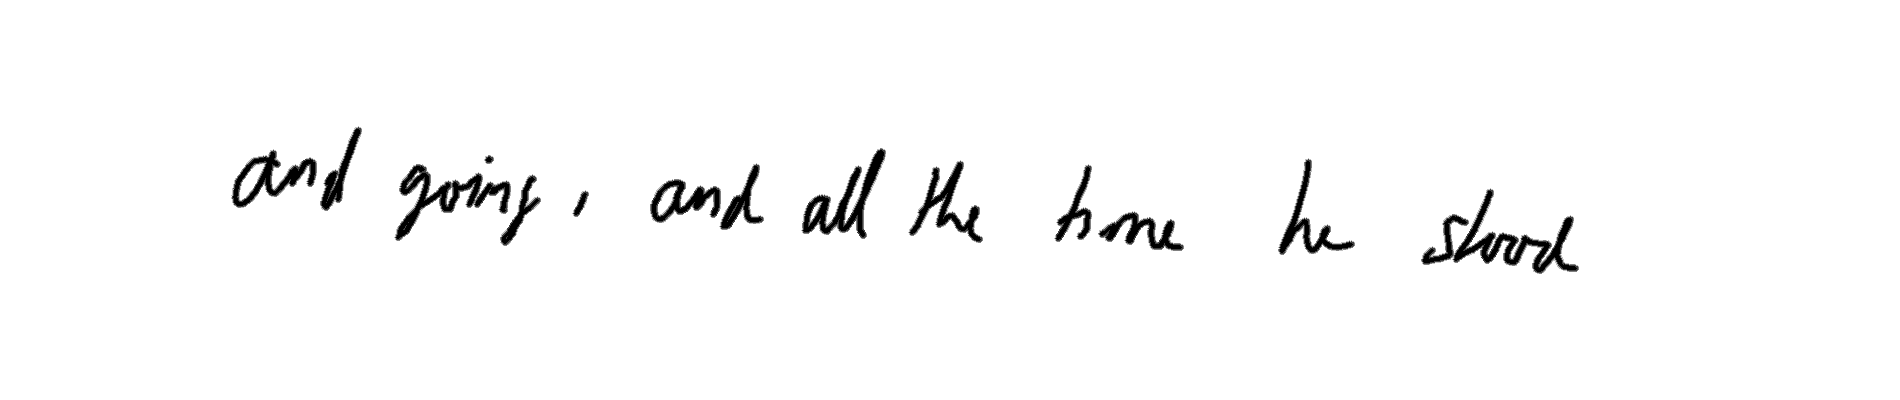 and going, and all the time he stood